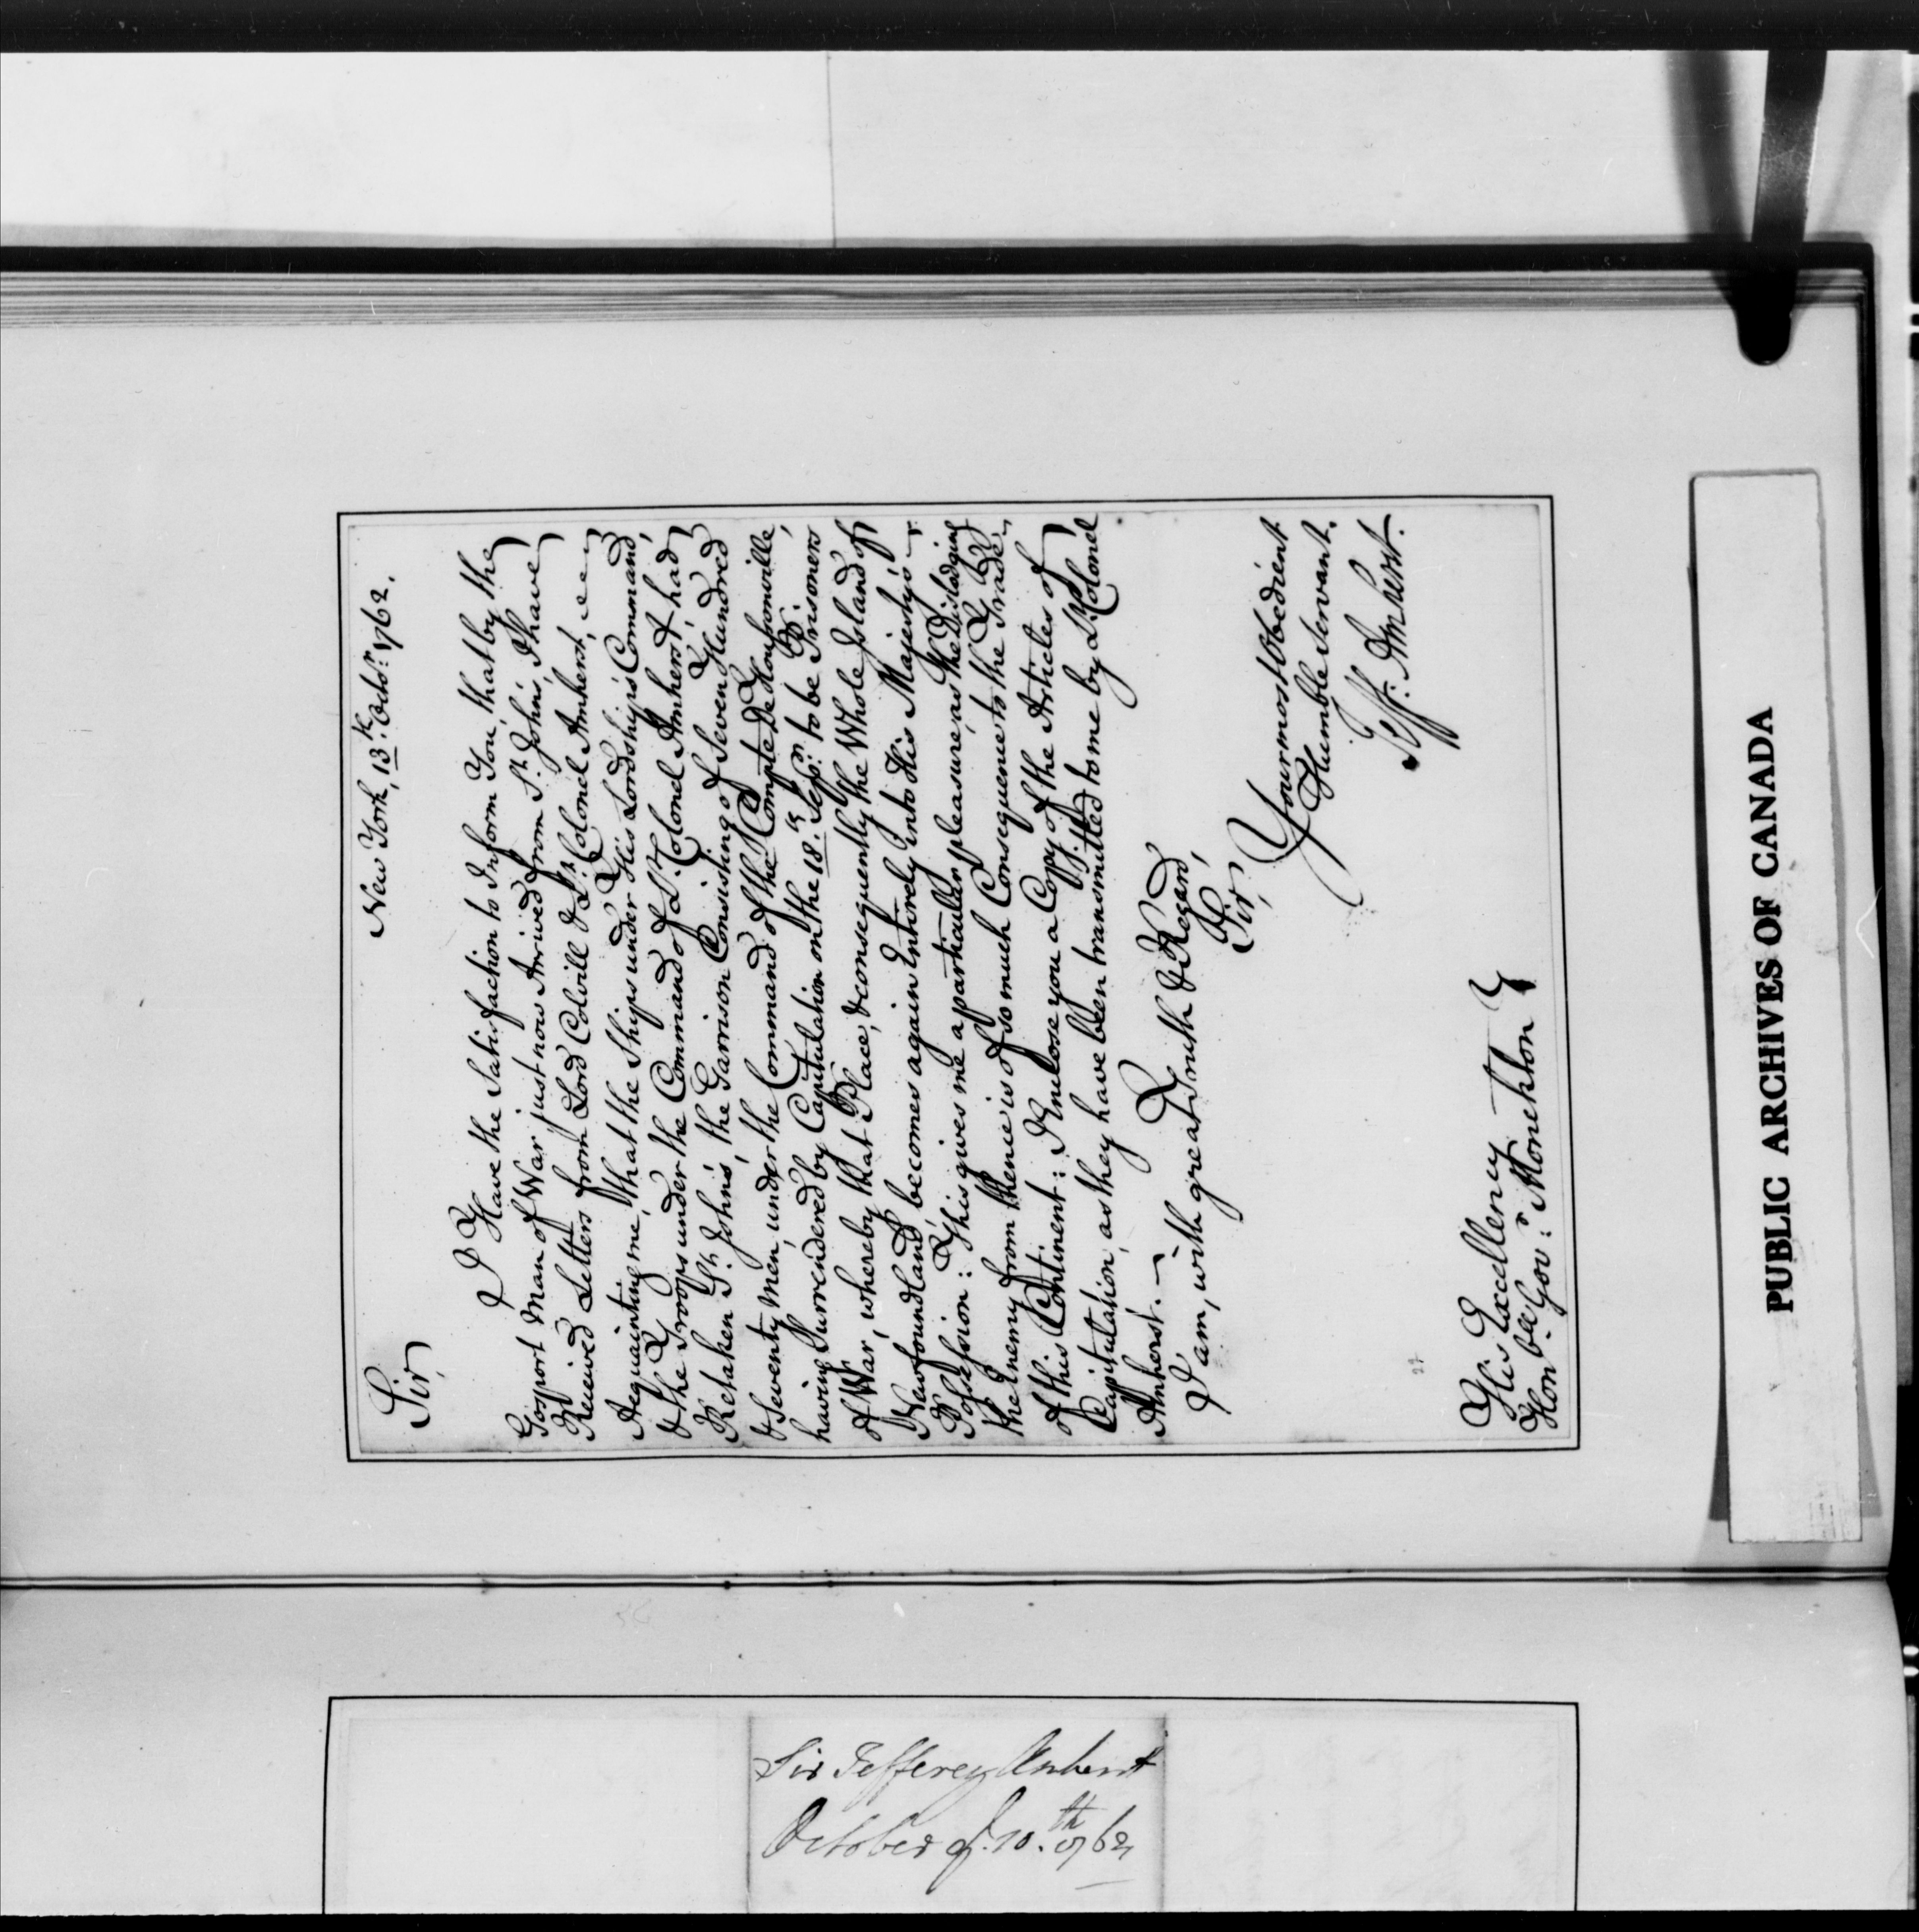 New York, 13.th Octor. 1762.
Sir,
I Have the Satisfaction to Inform You, that by the
Gosport Man of War just now Arrived from St. John's, I have
Received Letters from Lord Colvill & Lt. Colonel Amherst,
Acquainting me, that the Ships under His Lordship's Command,
& the Troops under the Command of Lt. Colonel Amherst, had
Retaken St. John's, the Garrison Consisting of Seven Hundred
& Seventy Men, under the Command of the Compte De Hausonville,
having Surrendered by Capitulation on the 18.th Sepr. to be Prisoners
of War, whereby that Place, & consequently the Whole Island of
Newfoundland, becomes again Entirely into His Majesty's
Possession: This gives me a particular pleasure, as the Dislodging
the Enemy from thence is of so much Consequence to the Trade
of this Continent: I Enclose you a Copy of the Articles of
Capitulation, as they have been transmitted to me by Lt. Colonel
Amherst.
I am, with great Truth & Regard,
Sir,
Your most Obedient
Humble Servant.
Jeff. Amherst.
His Excellency
Honble. Govr. Monckton
PUBLIC ARCHIVES OF CANADA
Sir Jefferey Amherst
October ye. 10.th 1762